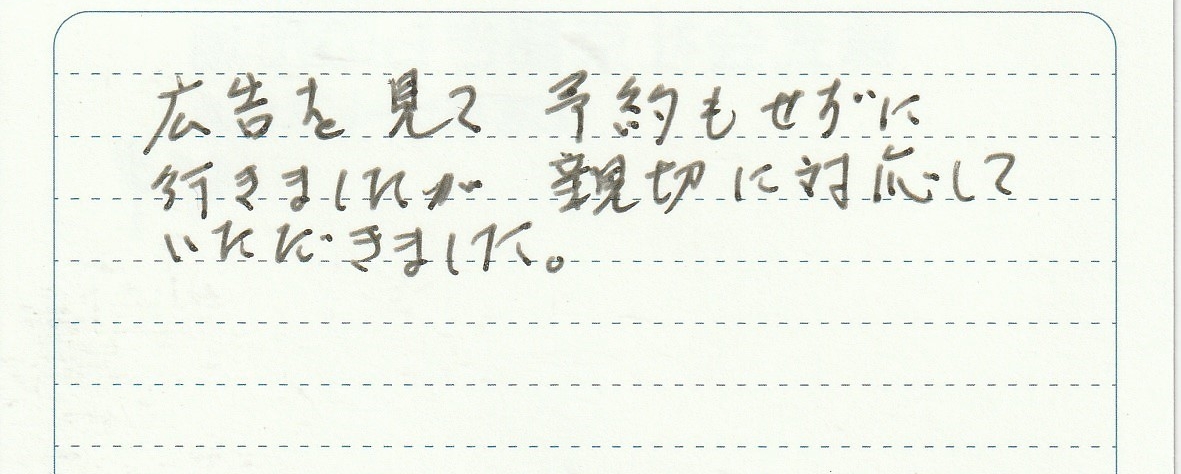 広告を見て 予約もせずに
行きましたが 親切に対応して
いただきました。